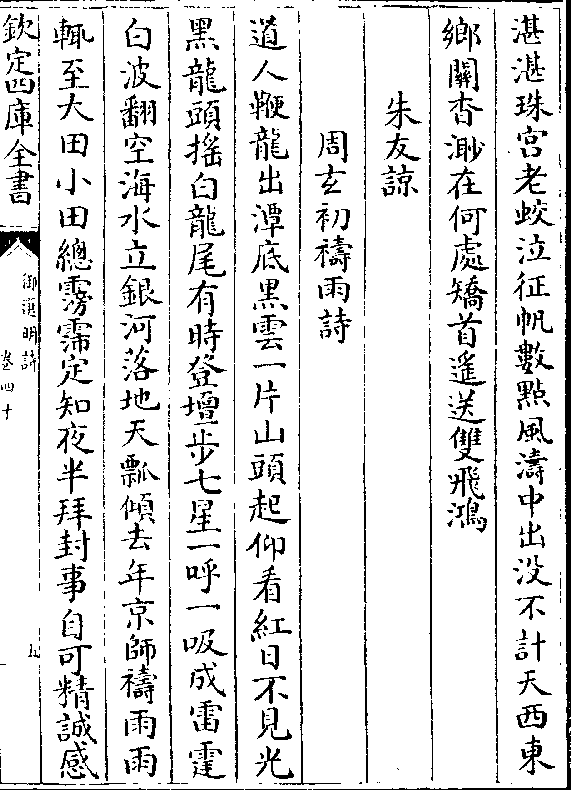 湛湛珠宫老蛟泣征帆數點風濤中出没不計天西東
鄉關杳渺在何處矯首遥送雙飛鴻
朱友諒
周玄初禱雨詩
道人鞭龍出潭底黒雲一片山頭起仰看紅日不見光
黑龍頭揺白龍尾有時登壇步七星一呼一吸成雷霆
白波翻空海水立銀河落地天瓢傾去年京師禱雨雨
輒至大田小田總霶霈定知夜半拜封事自可精誠感
欽定四庫全書
御選明詩
卷四十
五